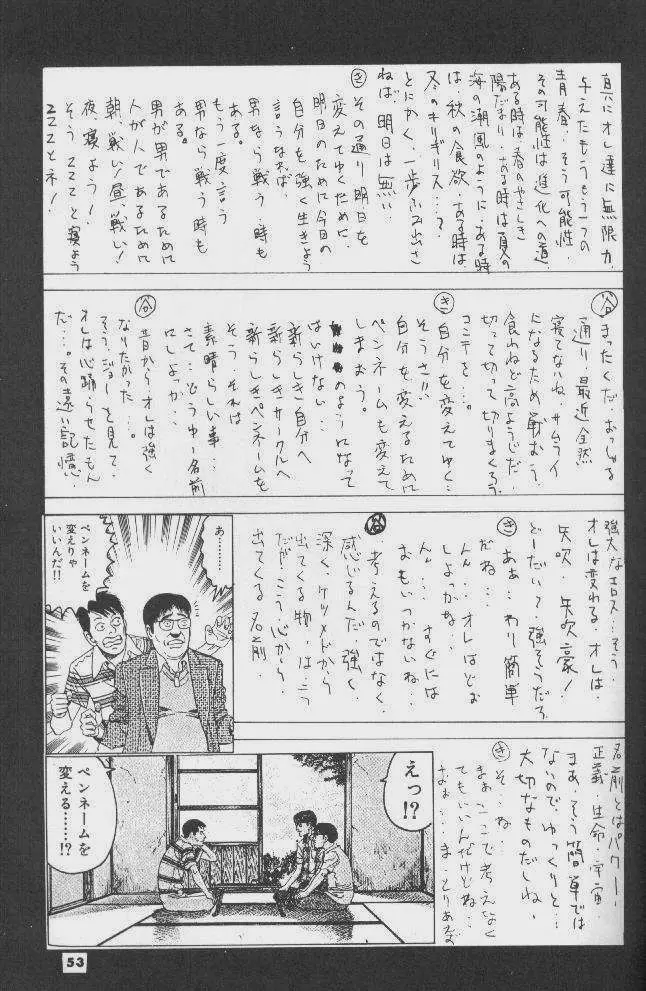 真にオレ達に無限力.
与えたもうもう一つの
青春.そう可能性.
その可能性は進化への道.
ある時は春のやさしき
陽だまり.ある時は夏の
海の潮風のように.ある時
は、秋の食欲.ある時は.
冬のキリギリス…?
とにかく、一歩ふみ出さ
ねば.明日は無い.
き その通り.明日を
変えてゆくために.
明日のために今日の
自分を強く生きよう
言うなれば.
男なら戦う.時も
ある。
もう一度言う
男なら戦う時も
ある。
男が男であるために
人が人であるために
朝、戦い!昼、戦い!
夜寝よう!
そう ZZZ と寝よう
ZZZとネ!
まったくだ.おっしゃる
通り.最近全然
寝てないね.サムライ
になるため戦おう.
食わねど高ようじだ.
切って切って切りまくろう.
コミテを….
き 自分を変えてゆく…
そうさ!!
自分を変えるために
ペンネームも変えて
しまおう。
のようになって
はいけない…
新らしき自分へ
新らしきサークルへ
新らしきペンネームを
そう.それは
素晴らしい事…
さて…どうゆー名前
にしよっか.
昔からオレは強く
なりたかった…
そう.ジョーを見て.
オレは心踊らせたもん
だ….その遠い記憶
強大なエロス…そう.
オレは変わる.オレは.
矢吹.矢吹豪!
どーだい?強そうだろ
き ああ…わり簡単
だね…
んん…オレはどお
しよっかな…
んん…すぐには
おもいつかないね.
考えるのではなく.
感じるんだ.強く.
深く.ケツメドから
出てくる物.はこう
だが.こう.心から.
出てくる名前.
あ……
ペンネームを
変えりゃ
いいんだ!!
名前とはパワー!
正義.生命.宇宙.
き そ…ね…
まあ.そう簡単では
ないので.ゆっくりと…
大切なものだしね.
まあ.ここで考えなく
てもいいんだけどね…
おお…ま.とりあえず
えっ!?
ペンネームを
変える……!?
53